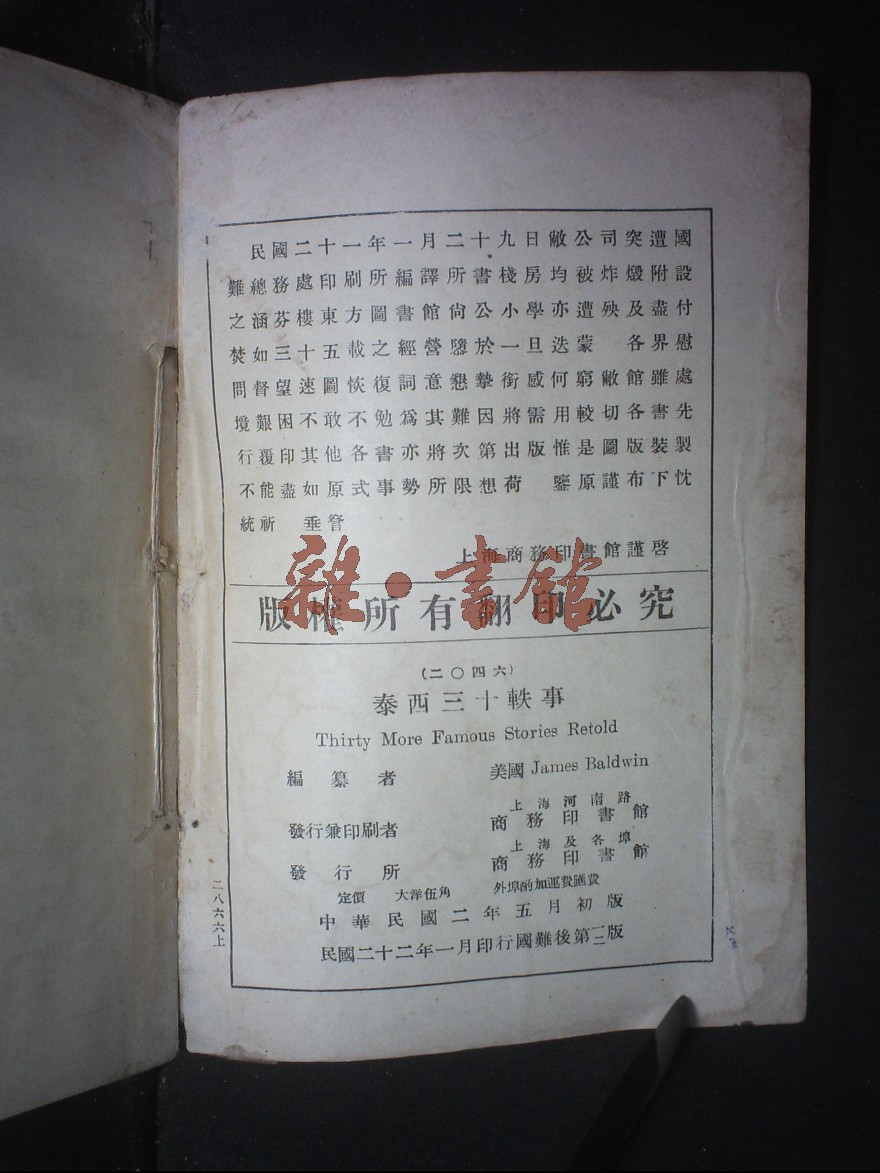 民國二十一年一月二十九日敝公司突遭國
難總務處印刷所編譯所書棧房均被炸燬附設
之涵芬樓東方圖書館尙公小學亦遭殃及盡付
焚如三十五載之經營隳於一旦迭蒙　各界慰
問督望速圖恢復詞意懇摯銜感何窮敝館雖處
境艱困不敢不勉爲其難因將需用較切各書先
行覆印其他各書亦將次第出版惟是圖版裝製
不能盡如原式事勢所限想荷　鑒原謹布下忱
統祈　垂詧
上海商務印書館謹啓
雜·書館
版權所有翻印必究
(二〇四六)
泰西三十軼事
Thirty More Famous Stories Retold
編纂者　美國 James Baldwin
發行兼印刷者　上海河南路　商務印書館
發行所　上海及各埠　商務印書館
定價　大洋伍角　外埠酌加運費匯費
中華民國二年五月初版
民國二十二年一月印行國難後第三版
二八六六上